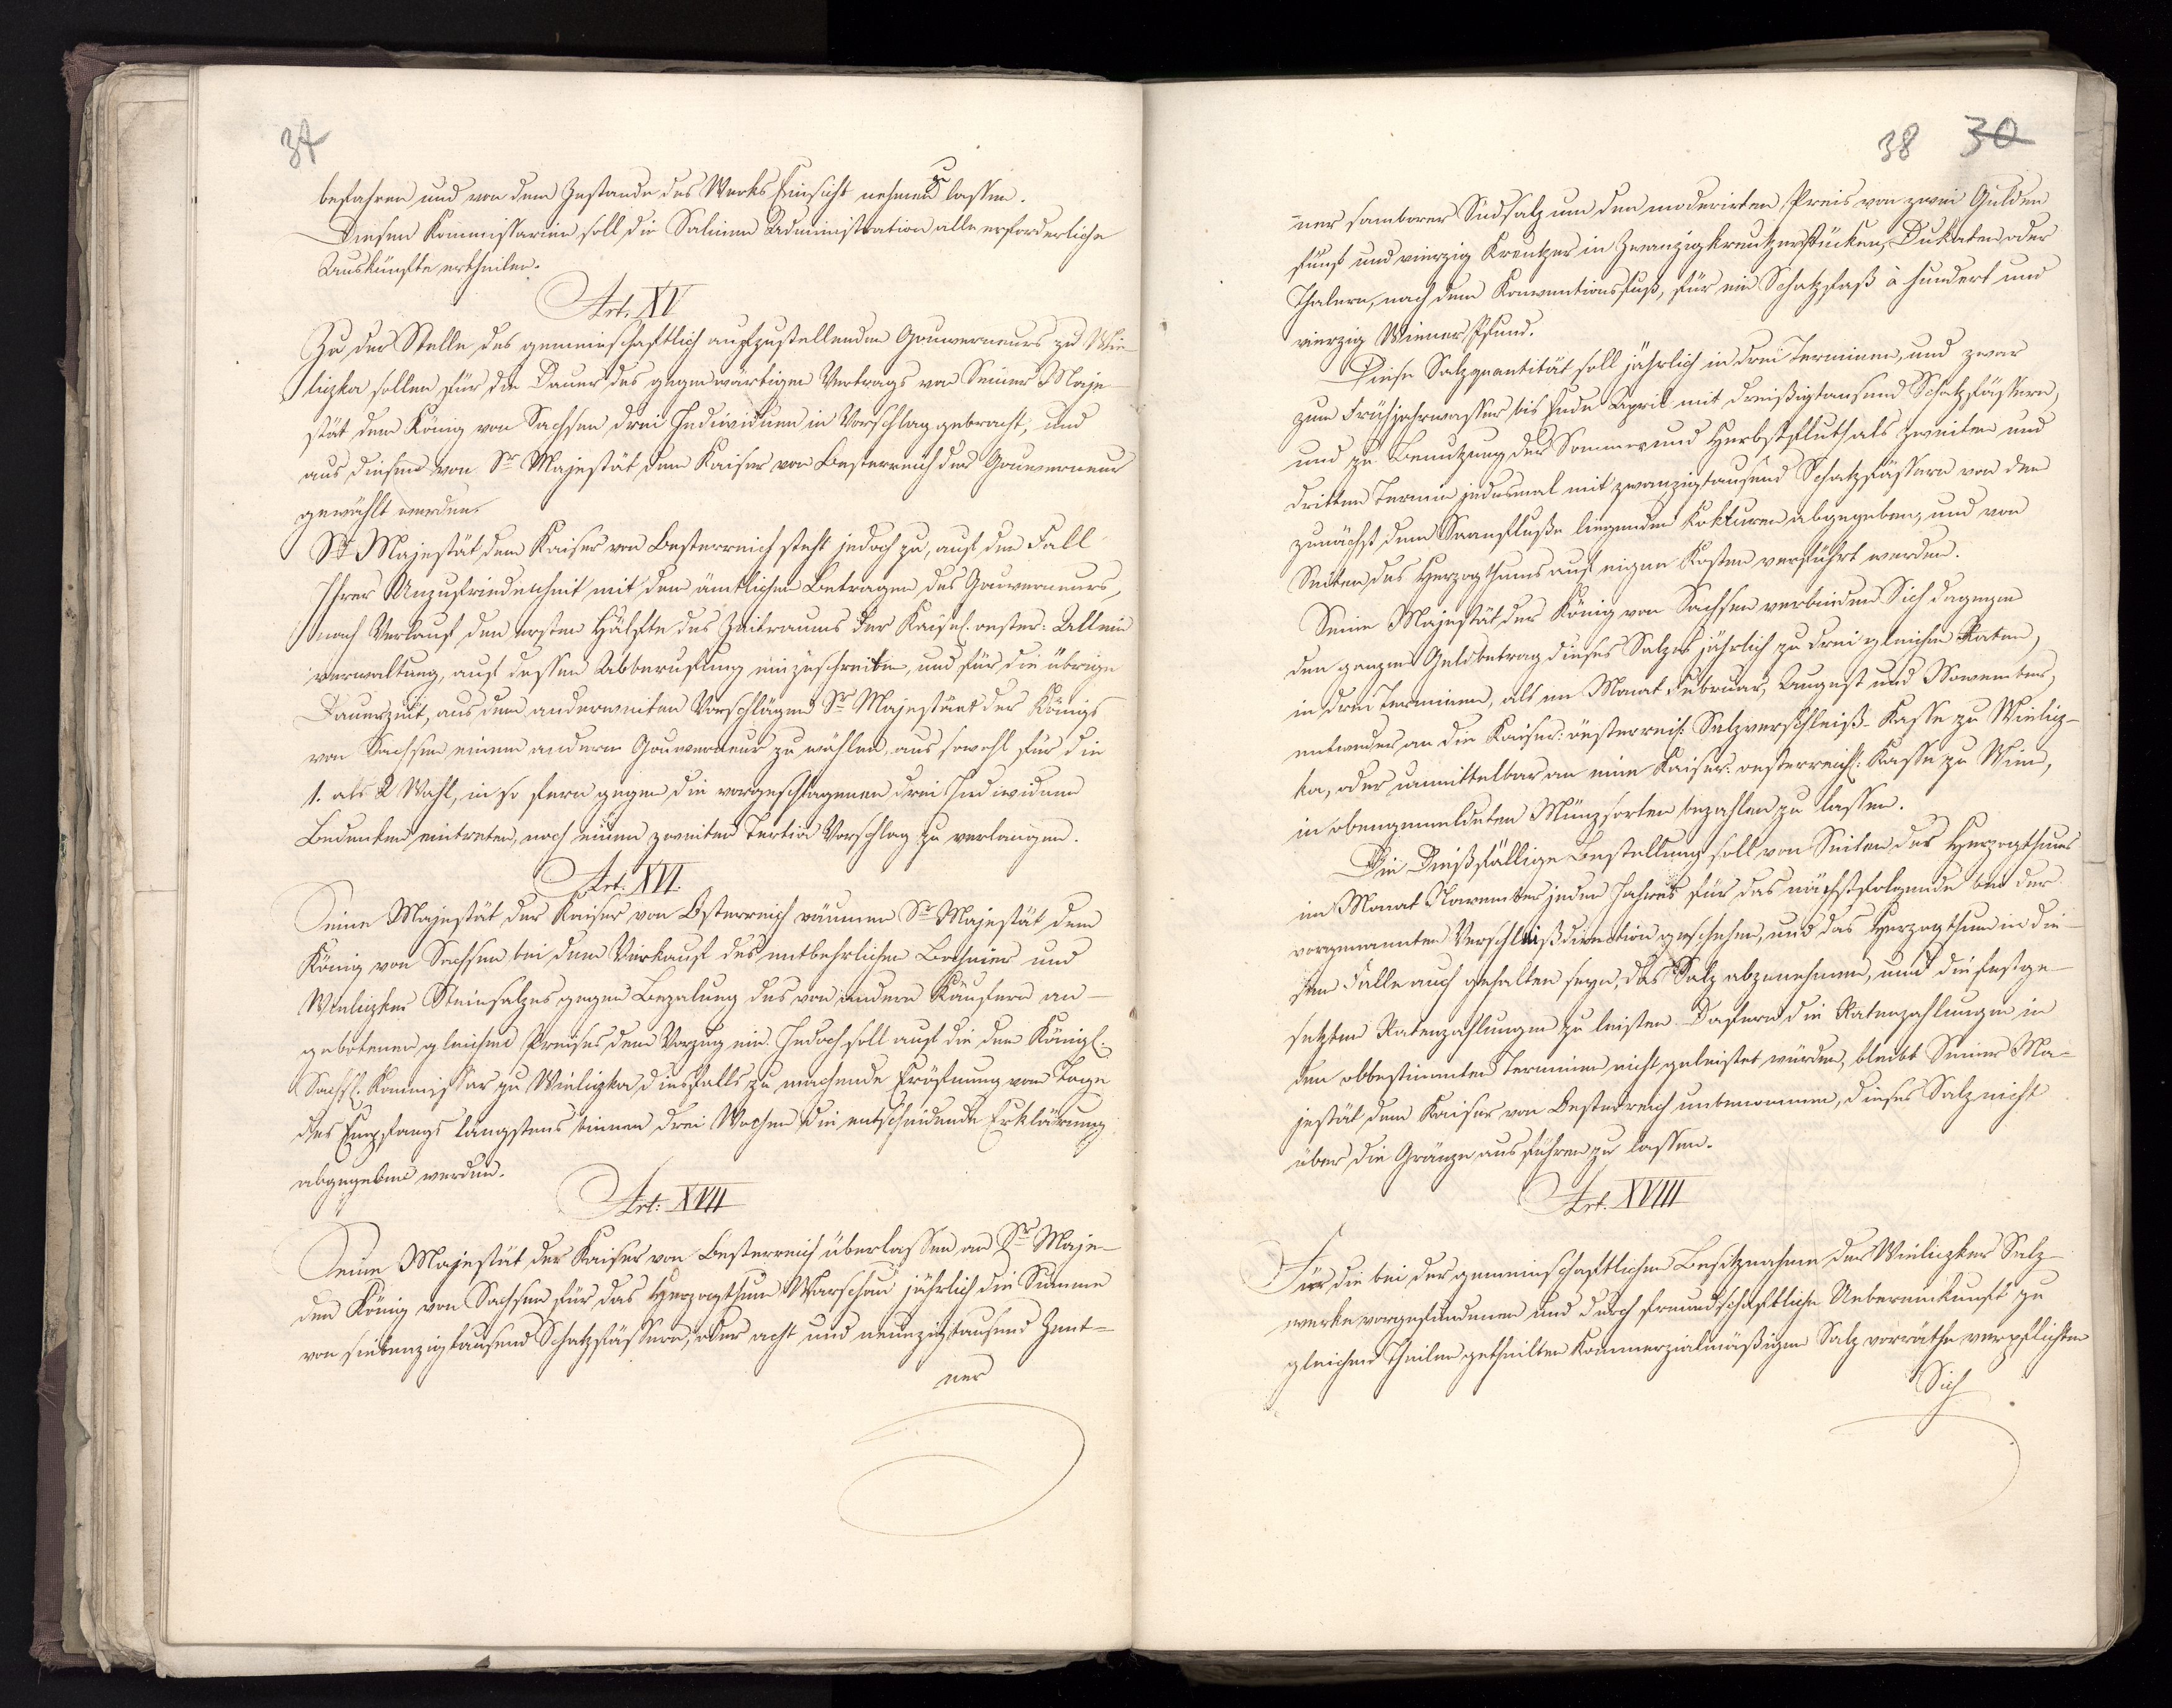 37
befahren und von dem Zustande des Werks Einsicht nehmen zu lassen.
Diesen Kommissarien soll die Salinen Administration alle erforderliche
Auskünfte ertheilen.
Art. XV
Zu der Stelle des gemeinschaftlich aufzustellenden Gouverneurs zu Wie-
liczka sollen für die Dauer des gegenwärtigen Vertrags von Seiner Maje-
stät dem König von Sachsen drei Individuen in Vorschlag gebracht, und
aus diesen von Sr Majestät dem Kaiser von Oesterreich der Gouverneur
gewählt werden.
Sr Majestät dem Kaiser von Oesterreich steht jedoch zu, auf den Fall
Ihrer Unzufriedenheit mit dem ämtlichen Betragen des Gouverneurs,
nach Verlauf der ersten Hälfte des Zeitraums der Kaiserl. oester: Allein
verwaltung, auf dessen Abberuffung einzuschreiten, und für die übrige
Dauerzeit, aus den anderweiten Vorschlägen Sr Majestäet des Königs
von Sachsen einen andern Gouverneur zu wählen, aus sowohl für die
1. als 2 Wahl, in so fern gegen die vorgeschlagenen drei Individuen
Bedenken eintreten, noch einen zweiten Tertia Vorschlag zu verlangen.
Art. XVI.
Seine Majestät der Kaiser von Österreich räumen Sr Majestät dem
König von Sachsen bei dem Verkauf des entbehrlichen Bochnier und
Wieliczker Steinsalzes gegen Bezalung des von andern Käufern an-
gebotenen gleichen Preises den Vorzug ein. Jedoch soll auf die dem Königl.
Sächs. Kommissär zu Wieliczka diesfalls zu machende Eröfnung vom Tage
des Empfangs längstens binnen drei Wochen die entscheidende Erklärung
abgegeben werden.
Art: XVII
Seine Majestät der Kaiser von Oesterreich überlassen an Sr Maje-
den König von Sachsen für das Herzogthum Warschau jährlich die Summe
von siebenzigtausend Schatzfässern, oder acht und neunzigtausend Zent-
ner
38 30
ner samborer Sudsalz um den moderirten Preis von zwei Gulden
fünf und vierzig Kreutzer in Zwanzigkreutzerstücken, Dukaten, oder
Thalern, nach dem Konventionsfuß, für ein Schatzfaß à hundert und
vierzig Wiener Pfund.
Diese Salzquantität soll jährlich in drei Terminen, und zwar
zum Frühjahrwasser bis Ende April mit dreißigtausend Schatzfässern,
und zu Benutzung der Sommer und Herbstfluth als zweiten und
dritten Termin jedesmal mit zwanzigtausend Schatzfässern von den
zunächst dem Saanfluße liegenden Kokturen abgegeben, und von
Seiten des Herzogthums auf eigene Kosten verführt werden.
Seine Majestät der König von Sachsen verbinden Sich dagegen
den ganzen Geldbetrag dieses Salzes jährlich zu drei gleichen Raten,
in drei Terminen, als im Monat Februar, August und November,
entweder an die Kaiser: österreich: Salzverschleiß-Kasse zu Wielicz-
ka, oder unmittelbar an eine Kaiser: oesterreich: Kasse zu Wien,
in obengemeldeten Münzsorten bezahlen zu lassen.
Die dießfällige Bestellung soll von Seiten des Herzogthums
im Monat November jeden Jahres für das nächstfolgende bei der
vorgenannten Verschleißdirection geschehen, und das Herzogthum in die-
sem Falle auch gehalten seyn, das Salz abzunehmen, und die festge-
setzten Ratenzahlungen zu leisten. Dafern die Ratenzahlungen in
den obbestimmten Terminen nicht geleistet würden, bleibt Seiner Ma-
jestät dem Kaiser von Oesterreich unbenommen, dieses Salz nicht
über die Gränze ausführen zu lassen.
Art. XVIII
Für die bei der gemeinschaftlichen Besitznahme der Wieliczker Salz-
werke vorgefundenen und durch freundschaftliche Uebereinkunft zu
gleichen Theilen getheilten Kommerzialmäßigen Salz vorräthe verpflichten
Sich